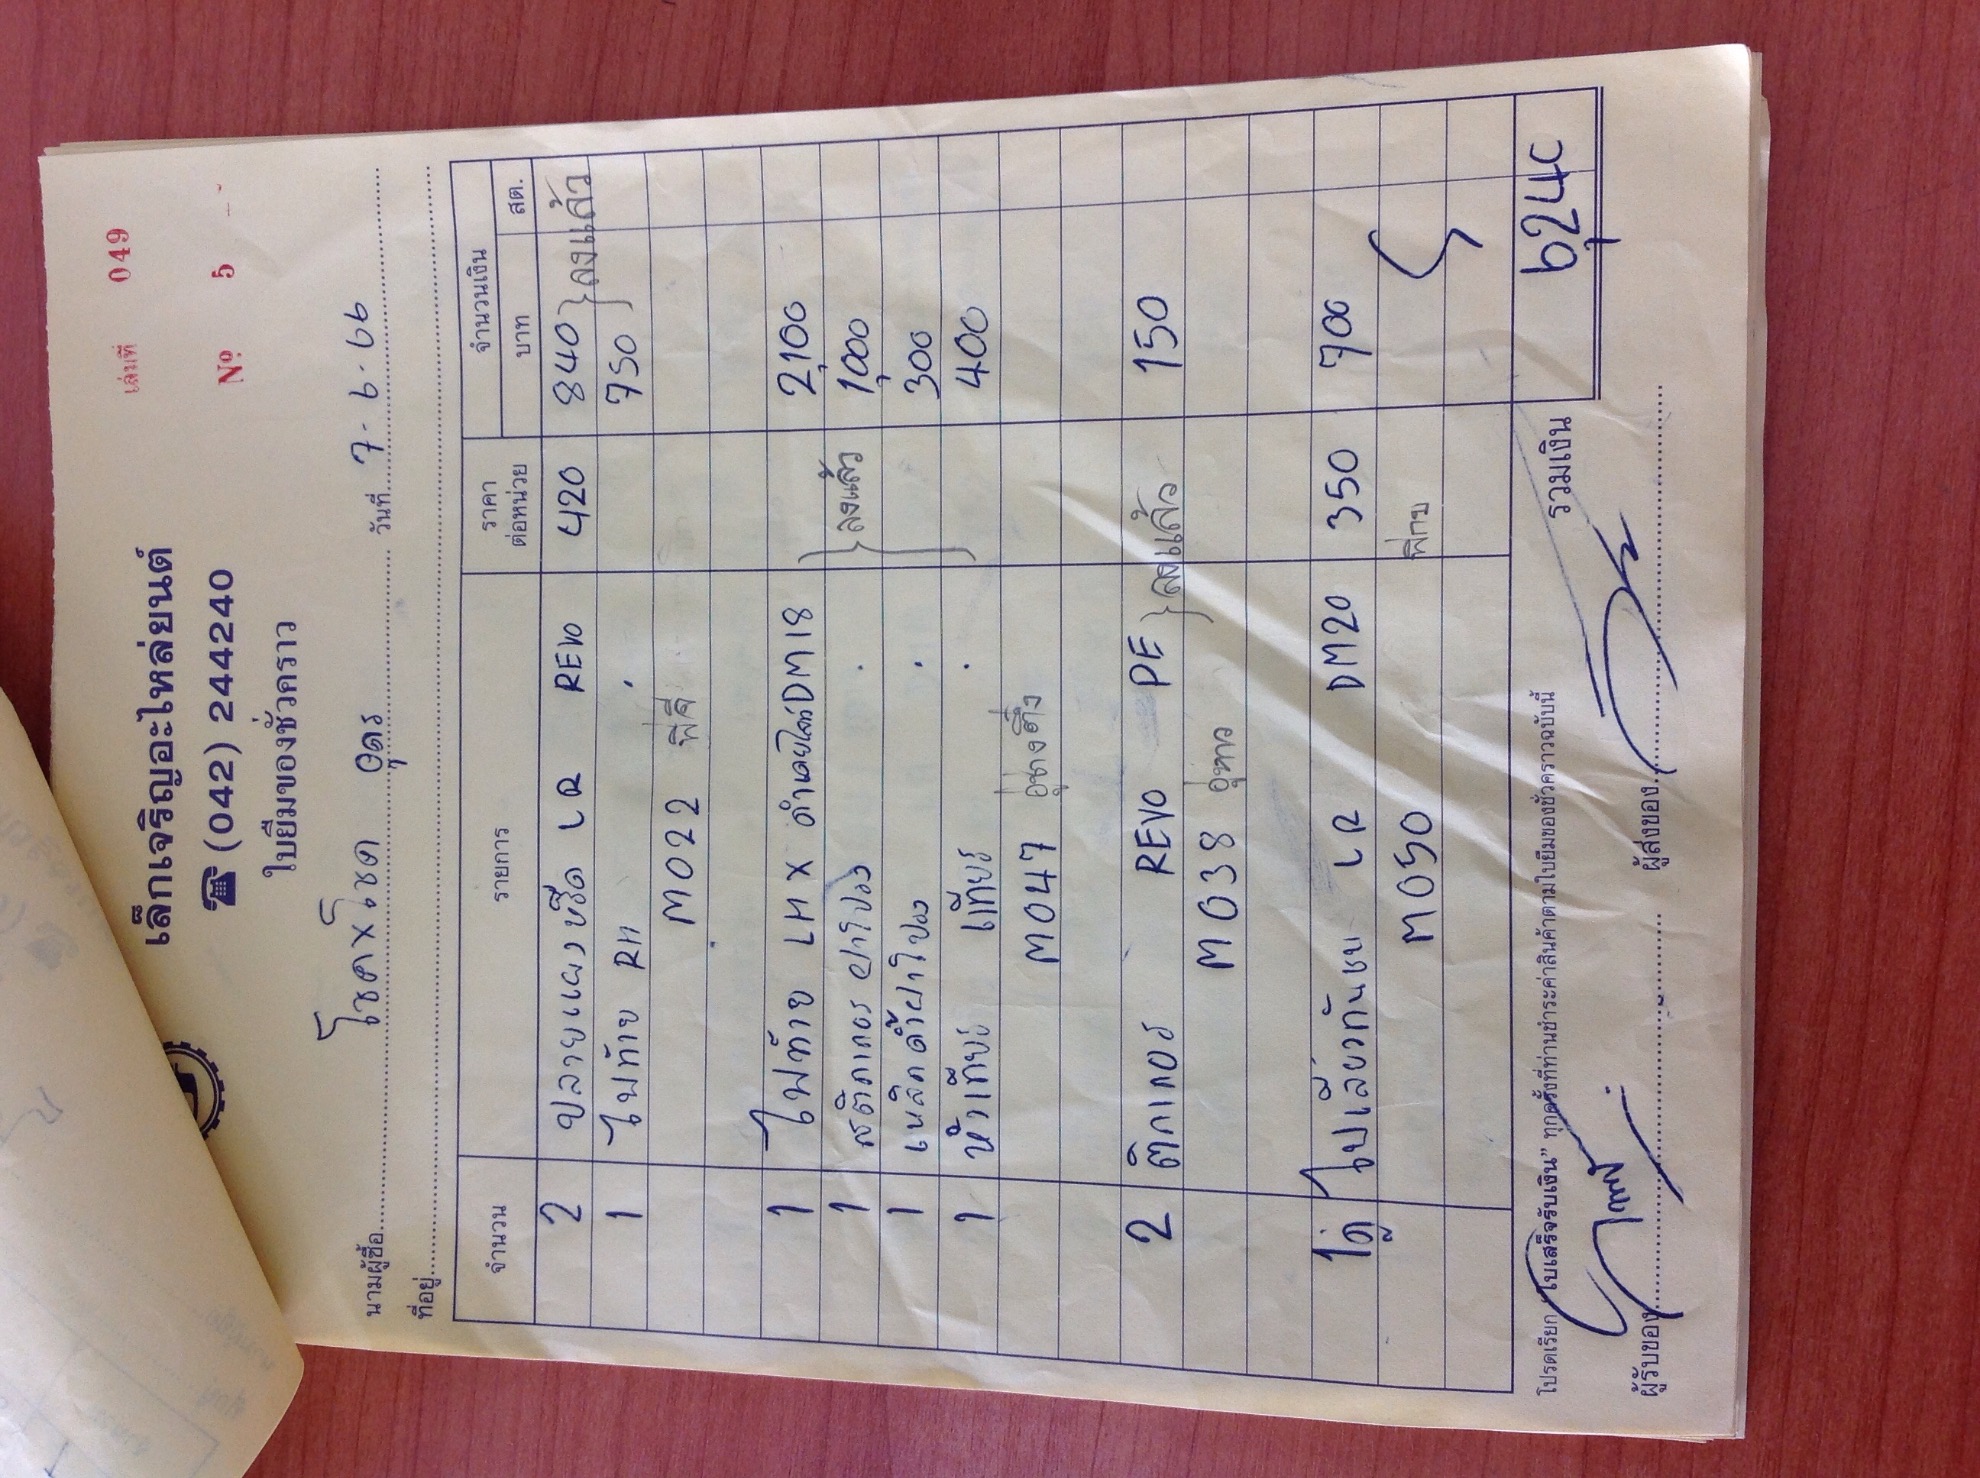 เล่มที่ 049
เล็กเจริญอะไหล่ยนต์
☎ (042) 244240
Nº 5
ใบยืมของชั่วคราว
นามผู้ซื้อ โชค x โชค อุดร วันที่ 7-6-66
ที่อยู่
จำนวน รายการ ราคาต่อหน่วย จำนวนเงิน
บาท สต.
2 ปลายแผงขีด LR REVO 420 840 } ลงแล้ว
1 ไฟท้าย RH . 750
M022 พี่จี
1 ไฟท้าย LH X ดำสโมค DM18 2,100
1 สติกเกอร์ ฝาโปรง . 1,000 } ลงแล้ว
1 เหล็กค้ำฝาโปรง . 300
1 หัวเกียร์ แท้ . 400
M047 อู่ช่างติ่ง
2 ติกเกอร์ REVO PE } ลงแล้ว 150
M038 อู่หาว
1คู่ ไฟเลี้ยวกันชน LR DM20 350 700
M050 พี่กบ
รวมเงิน 6,240
โปรดเรียก "ใบเสร็จรับเงิน" ทุกครั้งที่ท่านชำระค่าสินค้าตามใบยืมของชั่วคราวฉบับนี้
ผู้รับของ ผู้ส่งของ